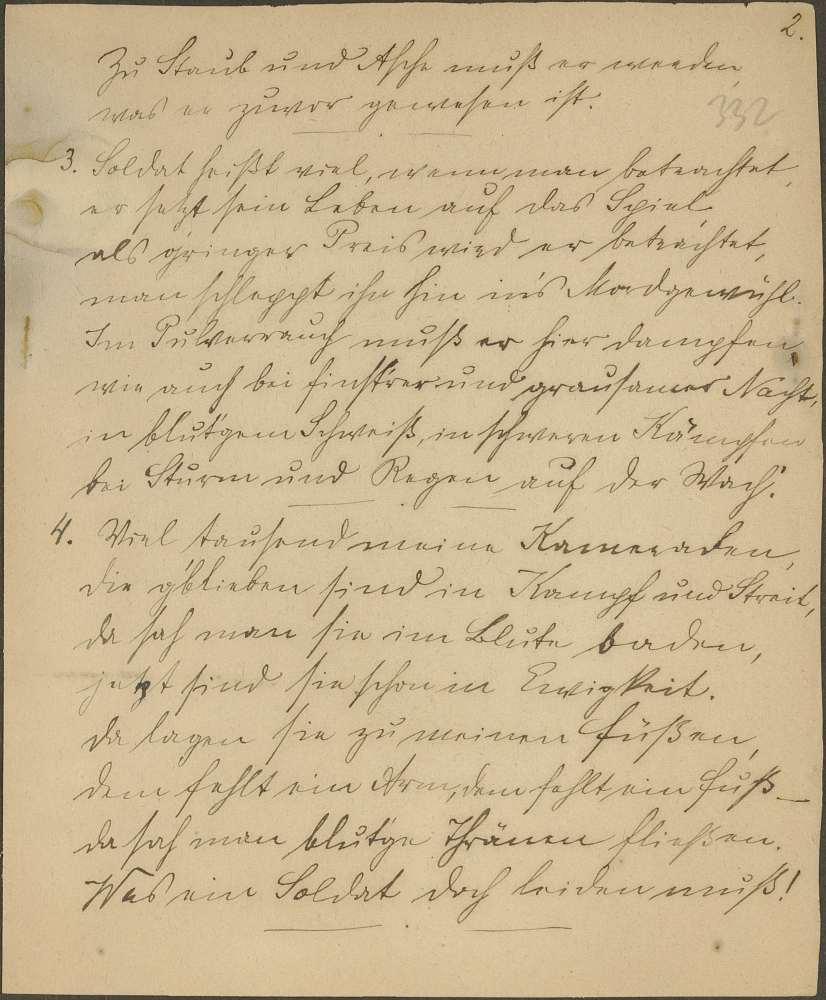 2.
Zu Staub und Asche muß er werden,
was er zuvor gewesen ist.
332
3. Soldat heißt viel, wenn man betrachtet,
er setzt sein Leben auf das Spiel,
als g'ringer Preis wird er betrachtet,
man schleppt ihn hin in's Mordgewühl.
Im Pulverrauch muß er hier dampfen,
wie auch bei finst'rer und grausamer Nacht,
in blut'gem Schweiß, in schweren Kämpfen
bei Sturm und Regen auf der Wach'.
4. Viel tausend meine Kameraden,
die g'blieben sind in Kampf und Streit,
da sah man sie im Blute baden,
jetzt sind sie schon in Ewigkeit.
Da lagen sie zu meinen Füßen,
dem fehlt ein Arm, dem fehlt ein Fuß –
da sah man blut'ge Thränen fließen.
Was ein Soldat doch leiden muß!